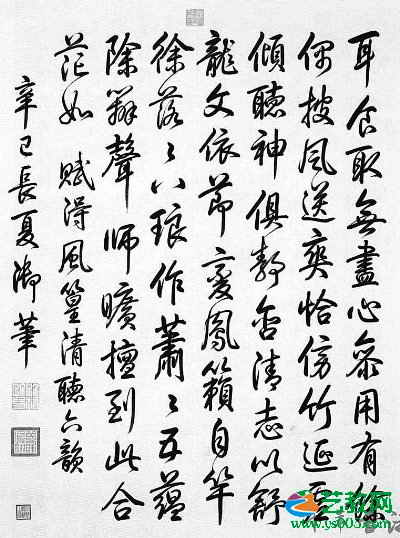 耳食取無盡心齋用有餘
偶披風送爽恰傍竹延虛
傾聽神俱靜含清志以舒
龍文依節變鳳籟自竿
徐落〻八琅作蕭〻五蘊
除辨聲師曠擅到此合
茫如 賦得風篁清聽六韻
辛巳長夏御筆
艺教网
www.ys003.com